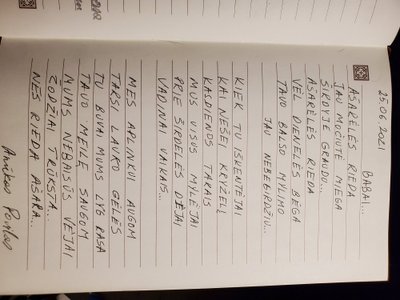 BABAI...
25.06.2021
AŠARĖLĖS RIEDA
JAU MOČIUTĖ MIEGA
ŠIRDYJE GRAUDU...
AŠARĖLĖS RIEDA
VĖL DIENELĖS BĖGA
TAVO BALSO MYLIMO
JAU NEBEGIRDŽIU...
KIEK TU IŠKENTĖJAI
KAI NEŠEI KRYŽELĮ
KASDIENOS TAKAIS
MUS VISUS MYLĖJAI
PRIE ŠIRDELĖS DĖJAI
VADINAI VAIKAIS...
MES APLINKUI AUGOM
TARSI LAUKO GĖLĖS
TU BUVAI MUMS LYG RASA
TAVO MEILĘ SAUGOM
MUMS NEBAISŪS VĖJAI
ŽODŽIAI TRŪKSTA...
NES RIEDA AŠARA...